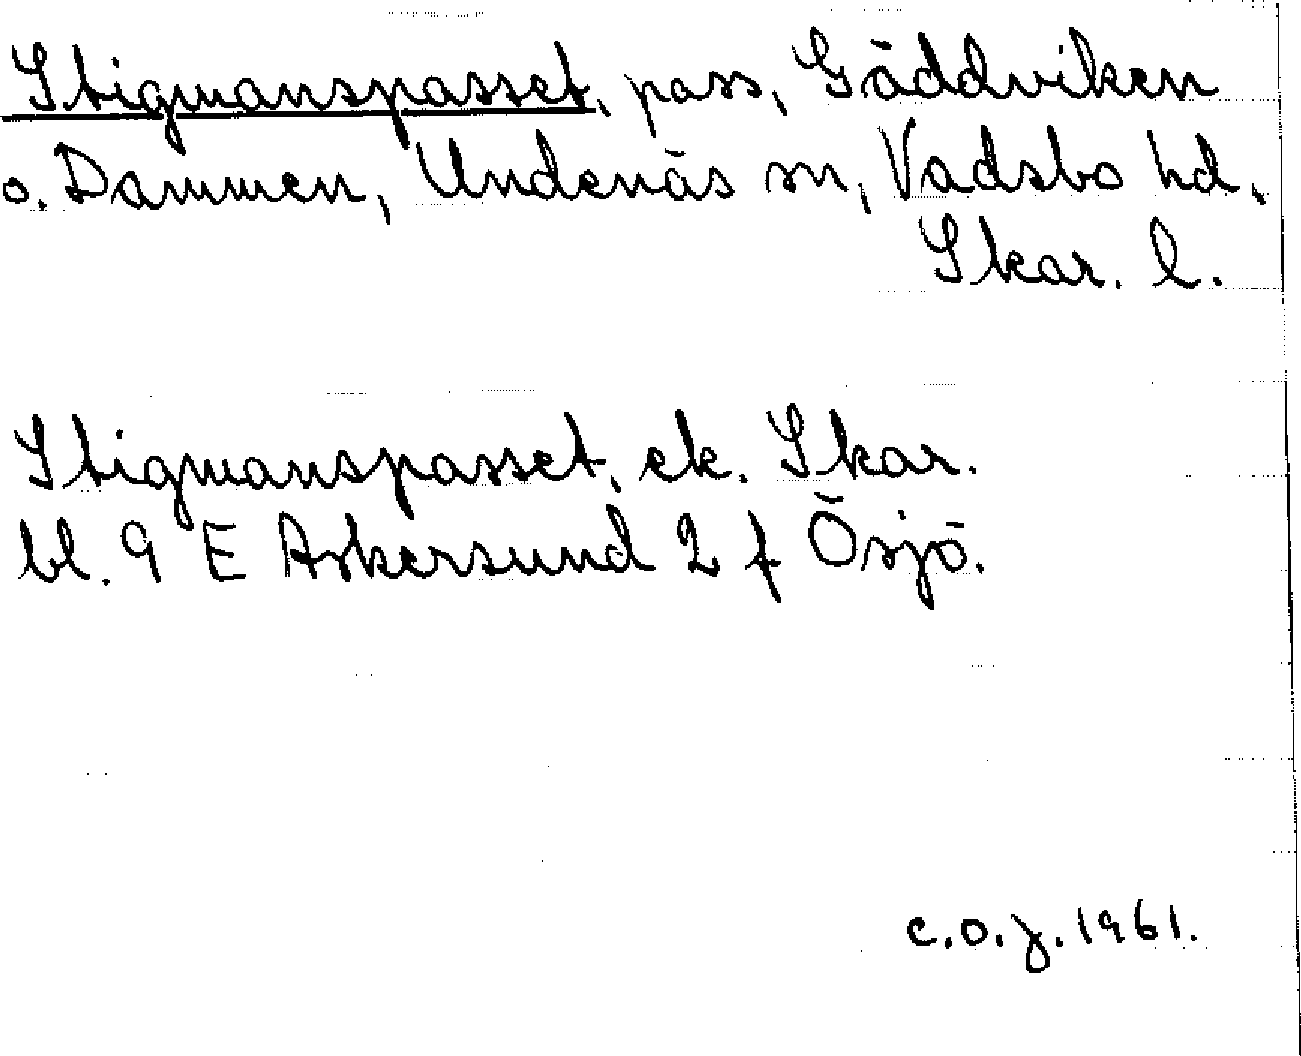 Stigmanspasset, pass, Gäddviken
o. Dammen, Undenäs sn, Vadsbo hd,
Skar. l.
Stigmanspasset, ek. Skar.
bl. 9 E Askersund 2 f Ösjö.
C.O.J. 1961.